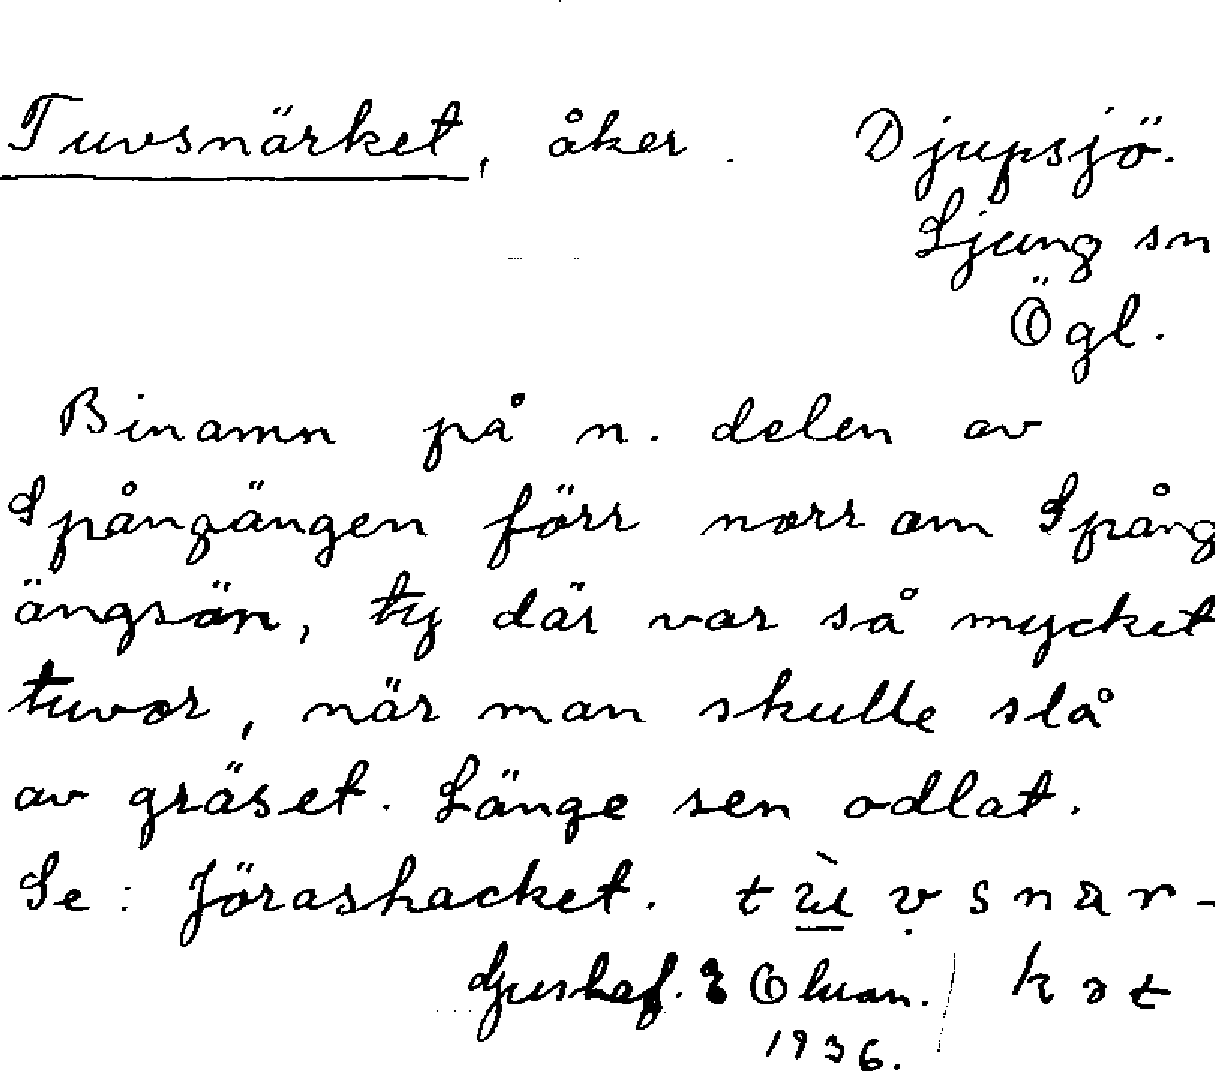 Tuvsnärket, åker. Djupsjö.
Ljung sn
Ögl.
Binamn på n. delen av
Spångängen förr norr om Spång
ängsån, ty där var så mycket
tuvor, när man skulle slå
av gräset. Länge sen odlat.
Se: Jörashacket. tu̱̇̀v̥snar-
kət
1936.